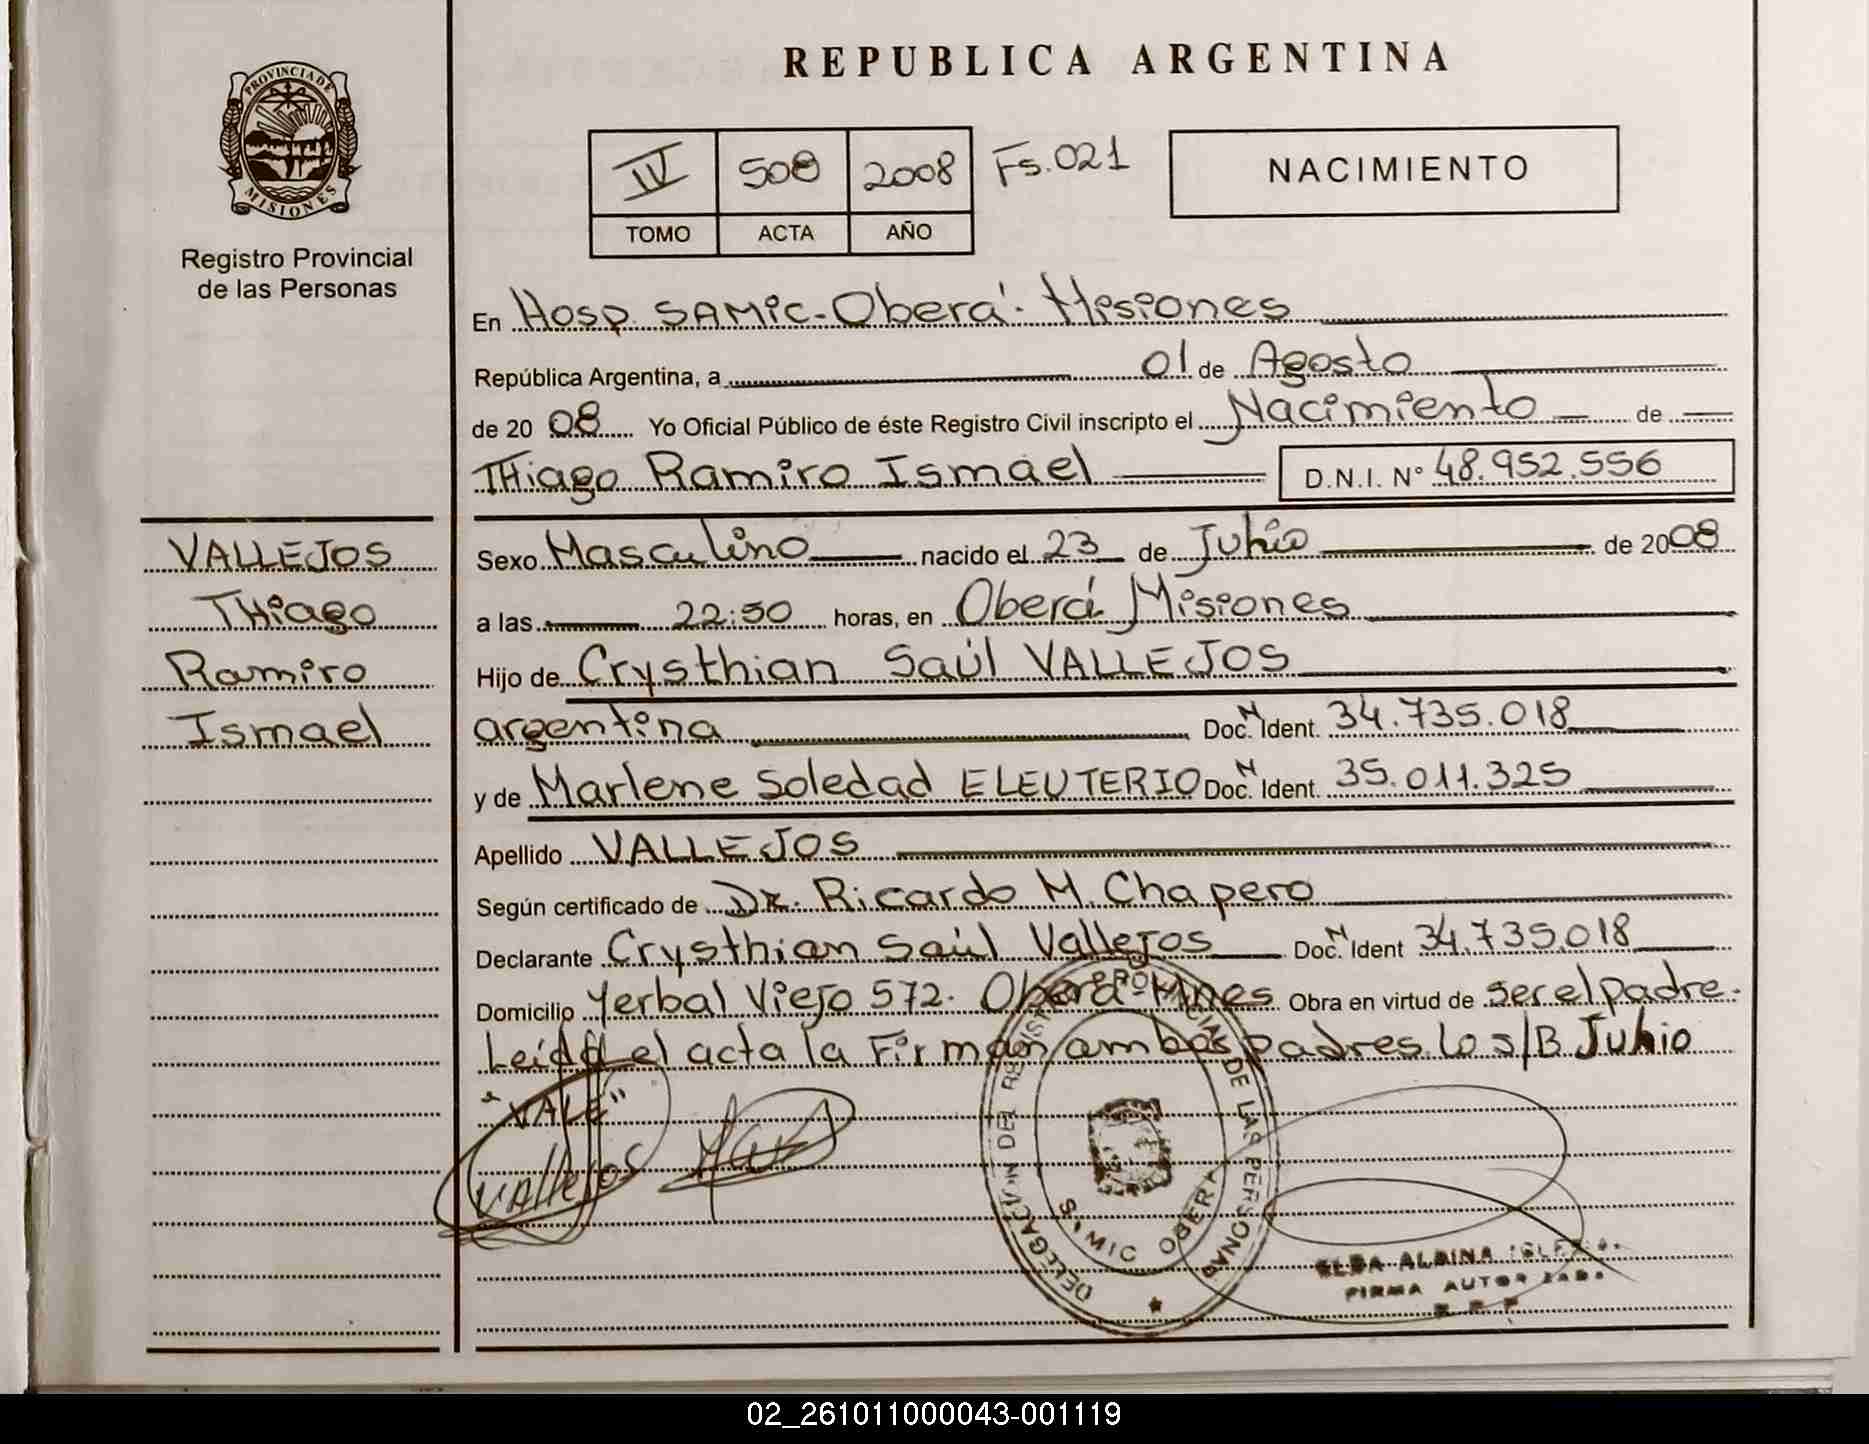 REPUBLICA ARGENTINA
PROVINCIA DE
MISIONES
Registro Provincial
de las Personas
IV 508 2008 Fs. 021
TOMO ACTA AÑO
NACIMIENTO
En Hosp. SAMic - Oberá - Misiones
República Argentina, a 01 de Agosto
de 2008 Yo Oficial Público de éste Registro Civil inscripto el Nacimiento de
THiago Ramiro Ismael D.N.I. N° 48.952.556
VALLEJOS
THiago
Ramiro
Ismael
Sexo Masculino nacido el 23 de Julio de 2008
a las 22:50 horas, en Oberá Misiones
Hijo de Crysthian Saúl VALLEJOS
argentina Doc. N Ident. 34.735.018
y de Marlene Soledad ELEUTERIO Doc. N Ident. 35.011.325
Apellido VALLEJOS
Según certificado de Dr. Ricardo M. Chapero
Declarante Crysthian Saúl Vallejos Doc. N Ident 34.735.018
Domicilio Yerbal Viejo 572. Oberá - Mnes Obra en virtud de ser el padre.
Leída el acta la Firman ambos padres. lo s/B Julio
"VALE"
Vallejos
DELEGACION DEL REGISTRO PROVINCIAL DE LAS PERSONAS
SAMIC OBERA
ELBA ALBINA
FIRMA AUTORIZADA
02_261011000043-001119